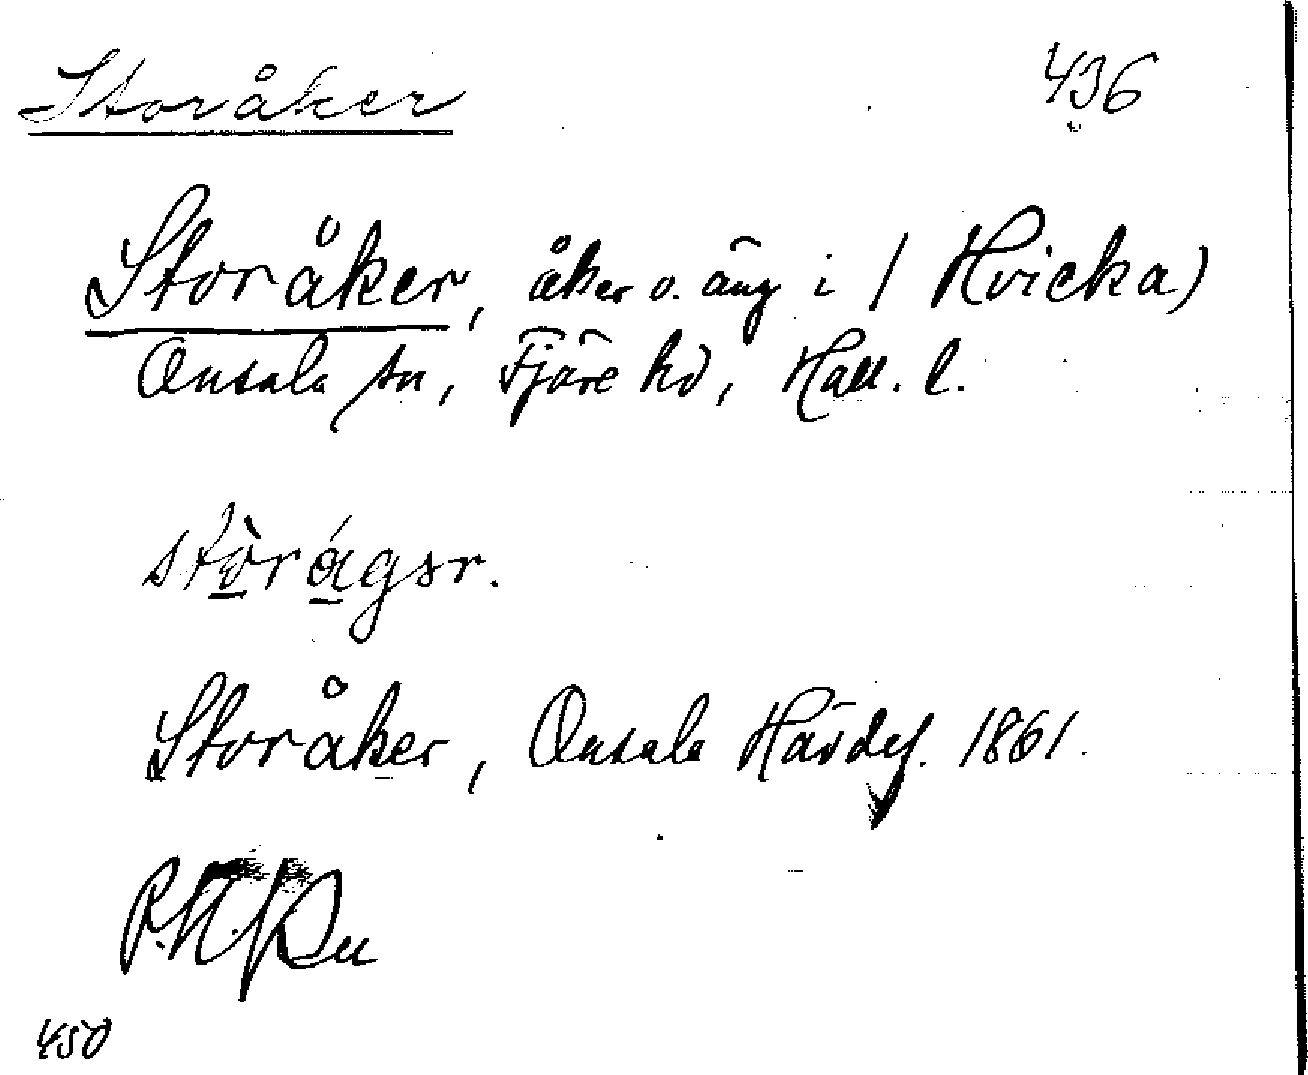 Storåker 436
Storåker, åker o. äng i / Hvicka)
Onsala sn, Fjäre hd, Hall. l.
stòrágsr.
Storåker, Onsala Härdes. 1861.
450